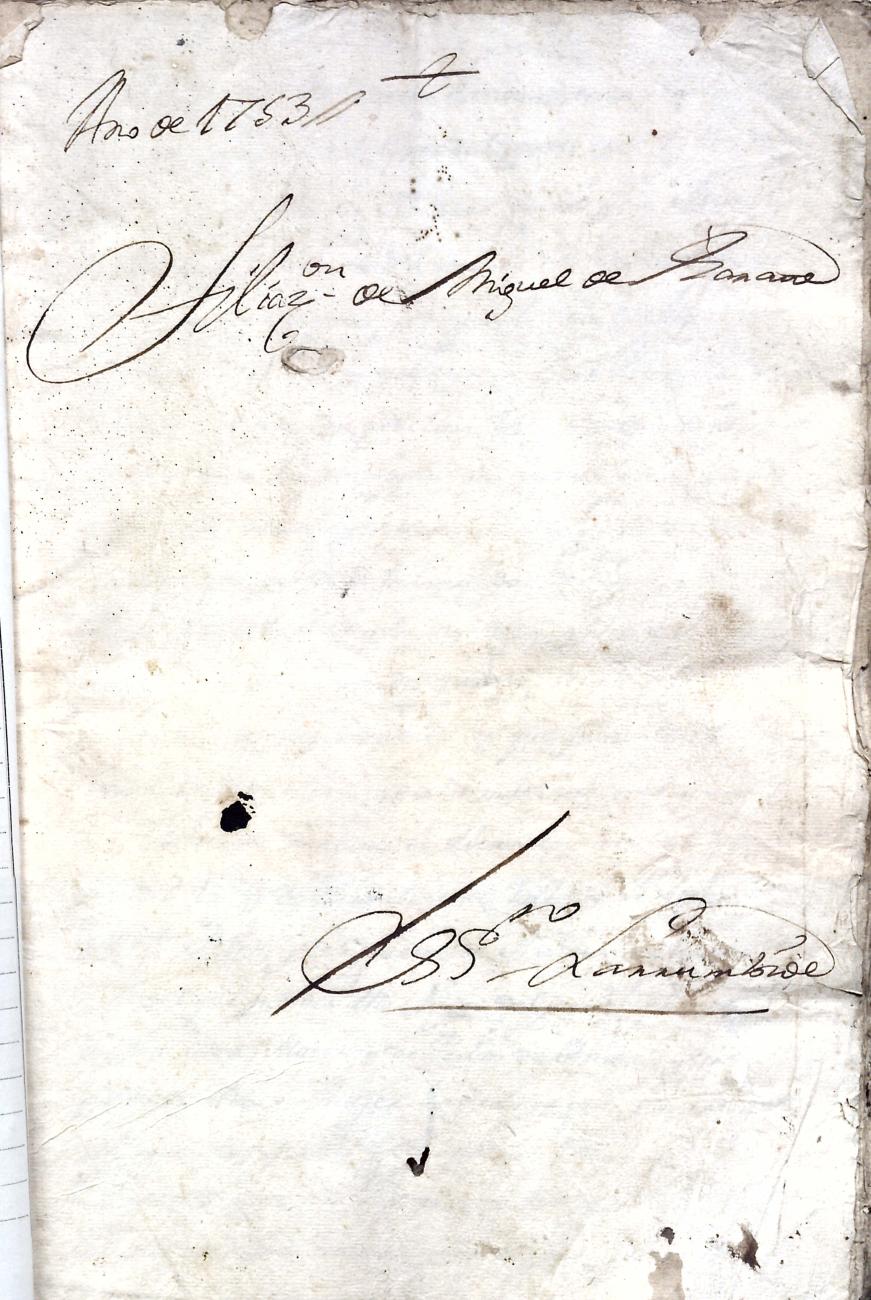 +
Año de 1753
Filiazon de Miguel de
SSno Larrumbide